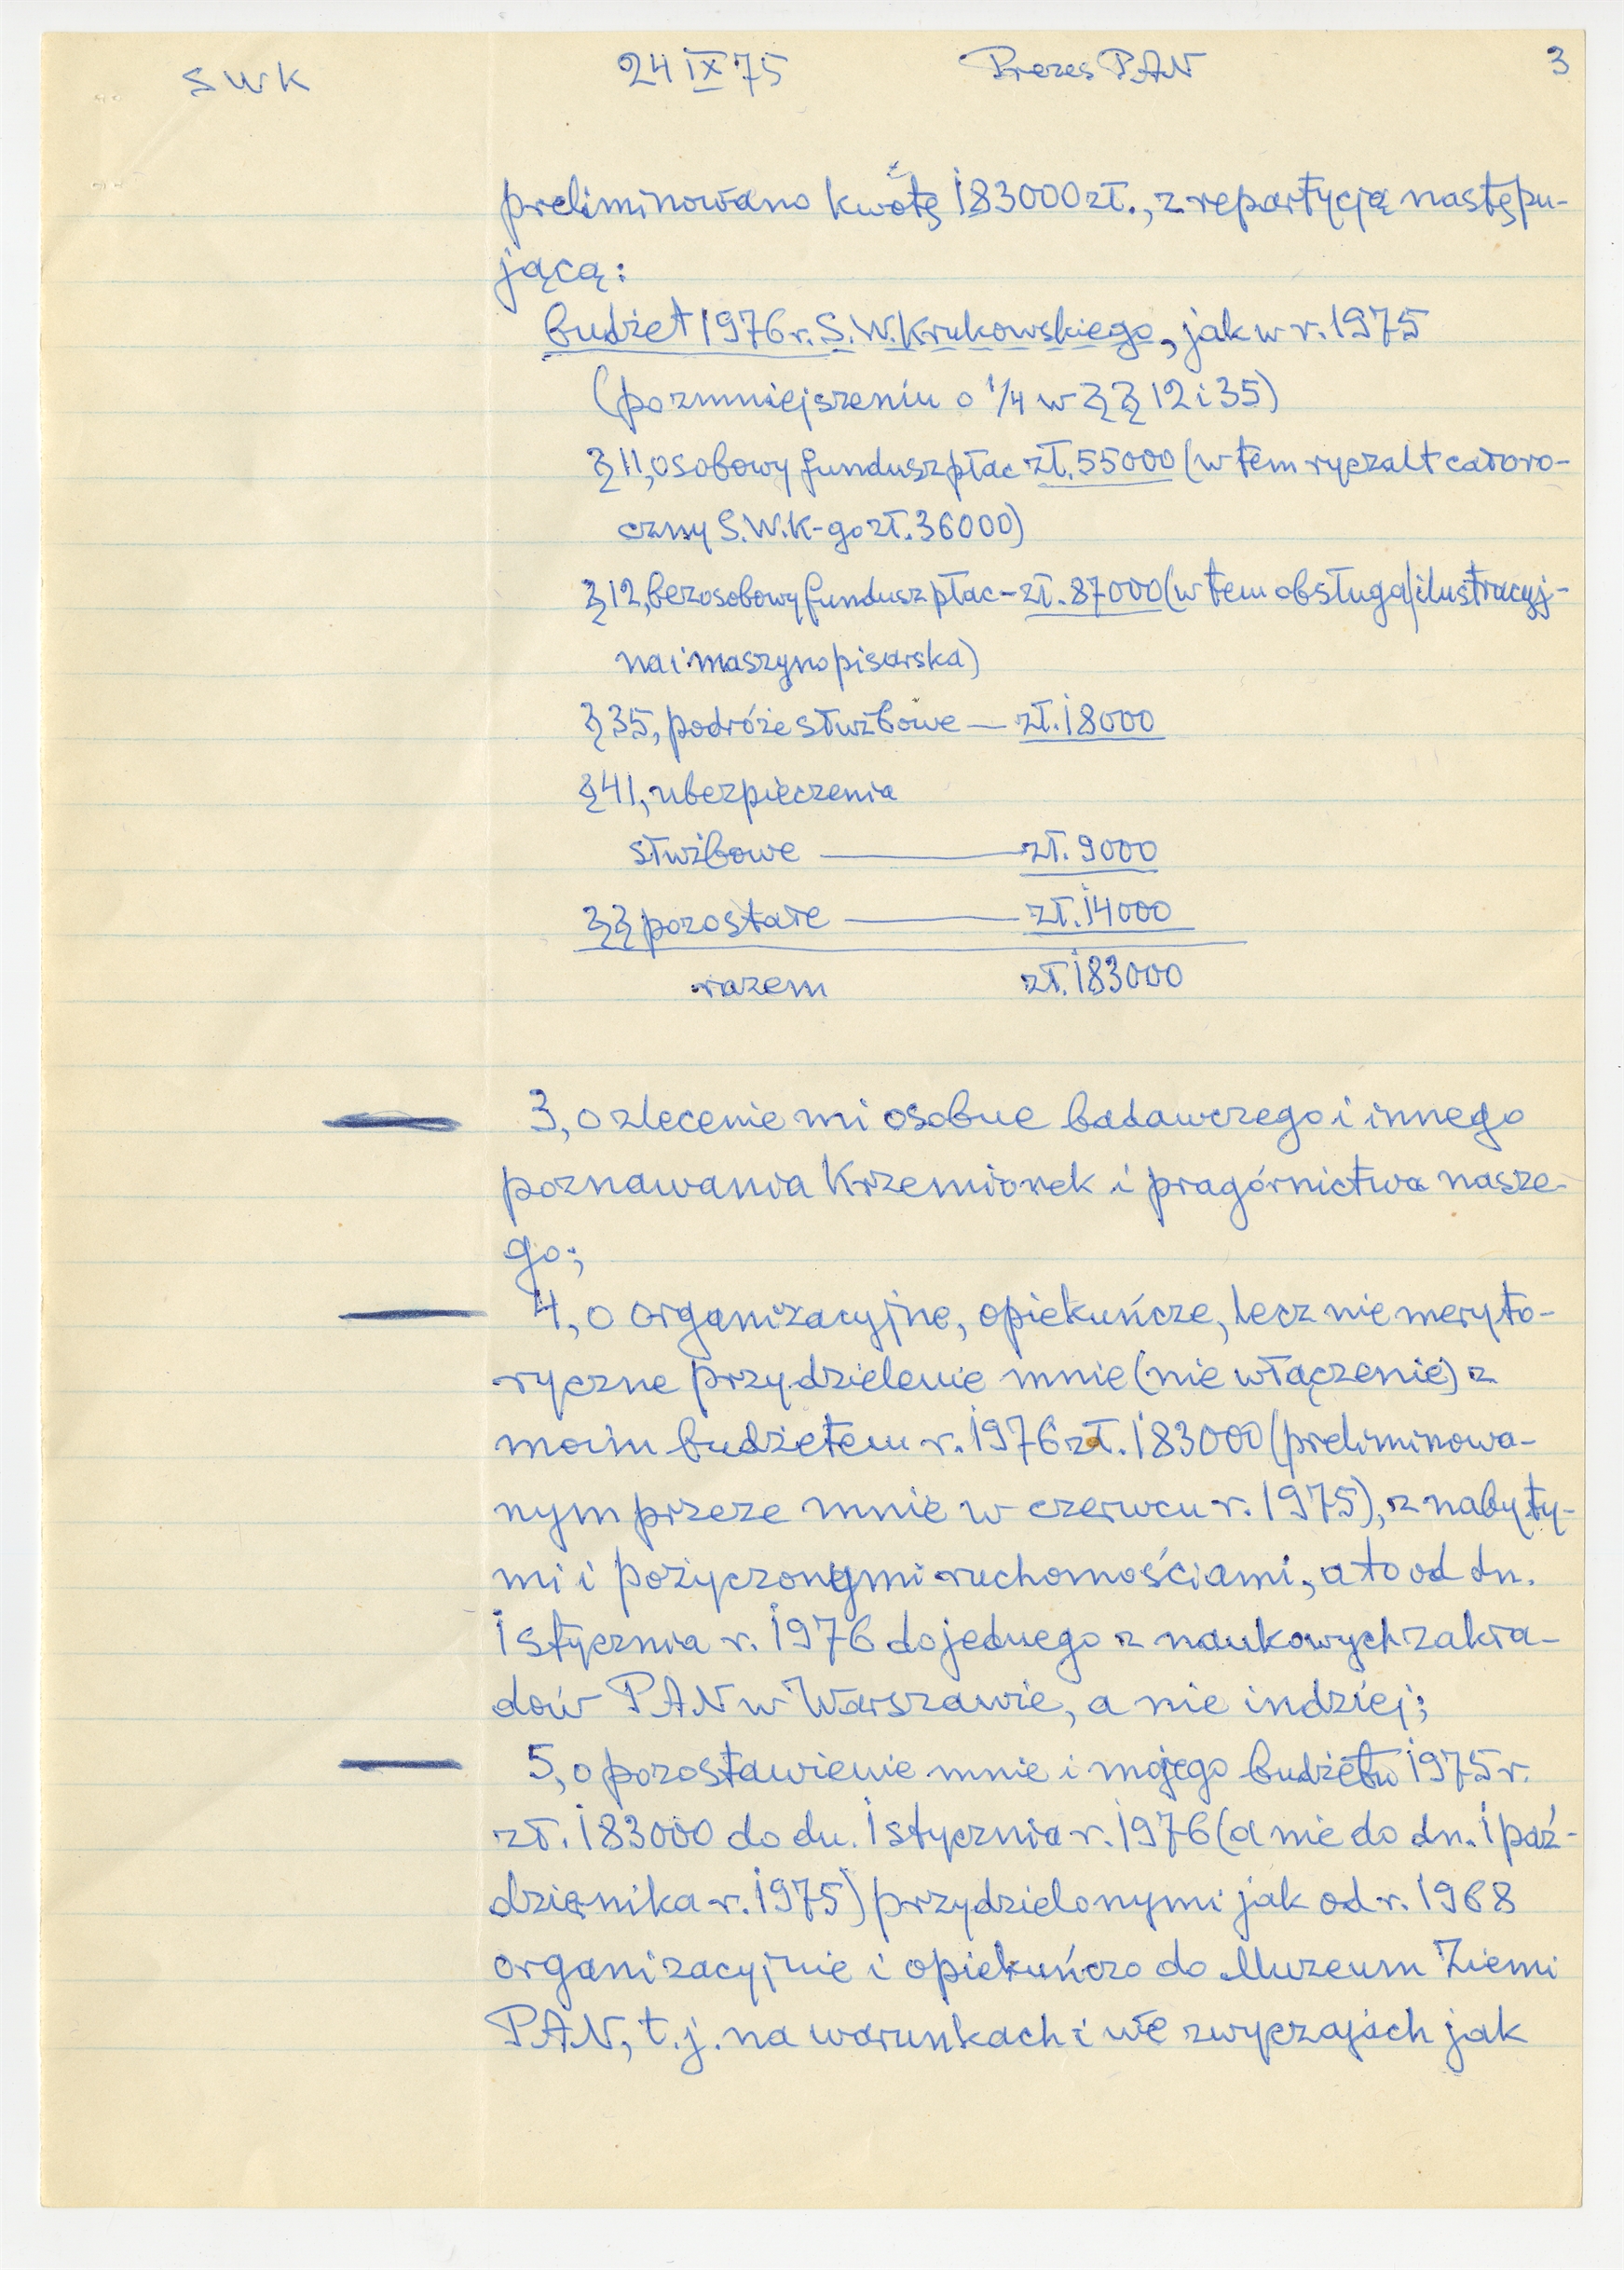 SWK 24 IX 75 Prezes PAN 3
preliminowano kwotę 183000 zł., z repartycją następu-
jącą:
budżet 1976 r. S. W. Krukowskiego, jak w r. 1975
(po zmniejszeniu o 1/4 w §§ 12 i 35)
§ 11, osobowy fundusz płac zł. 55000 (w tem ryczałt całoro-
czny S.W.K-go zł. 36000)
§ 12, bezosobowy fundusz płac - zł. 87000 (w tem obsługa ilustracyj-
na i maszynopisarska)
§ 35, podróże służbowe — zł. 18000
§ 41, ubezpieczenia
służbowe — zł. 9000
§§ pozostałe — zł. 14000
razem zł. 183000
3, o zlecenie mi osobne badawczego i innego
poznawania Krzemionek i pragórnictwa nasze-
go;
4, o organizacyjne, opiekuńcze, lecz nie meryto-
ryczne przydzielenie mnie (nie włączenie) z
moim budżetem r. 1976 zł. 183000 (preliminowa-
nym przeze mnie w czerwcu r. 1975), z nabyty-
mi i pożyczonymi ruchomościami, a to od dn.
1 stycznia r. 1976 do jednego z naukowych zakła-
dów PAN w Warszawie, a nie indziej;
5, o pozostawienie mnie i mojego budżetu 1975 r.
zł. 183000 do dn. 1 stycznia r. 1976 (a nie do dn. 1 paź-
dziernika r. 1975) przydzielonymi jak od r. 1968
organizacyjnie i opiekuńczo do Muzeum Ziemi
PAN, t.j. na warunkach i we zwyczajach jak